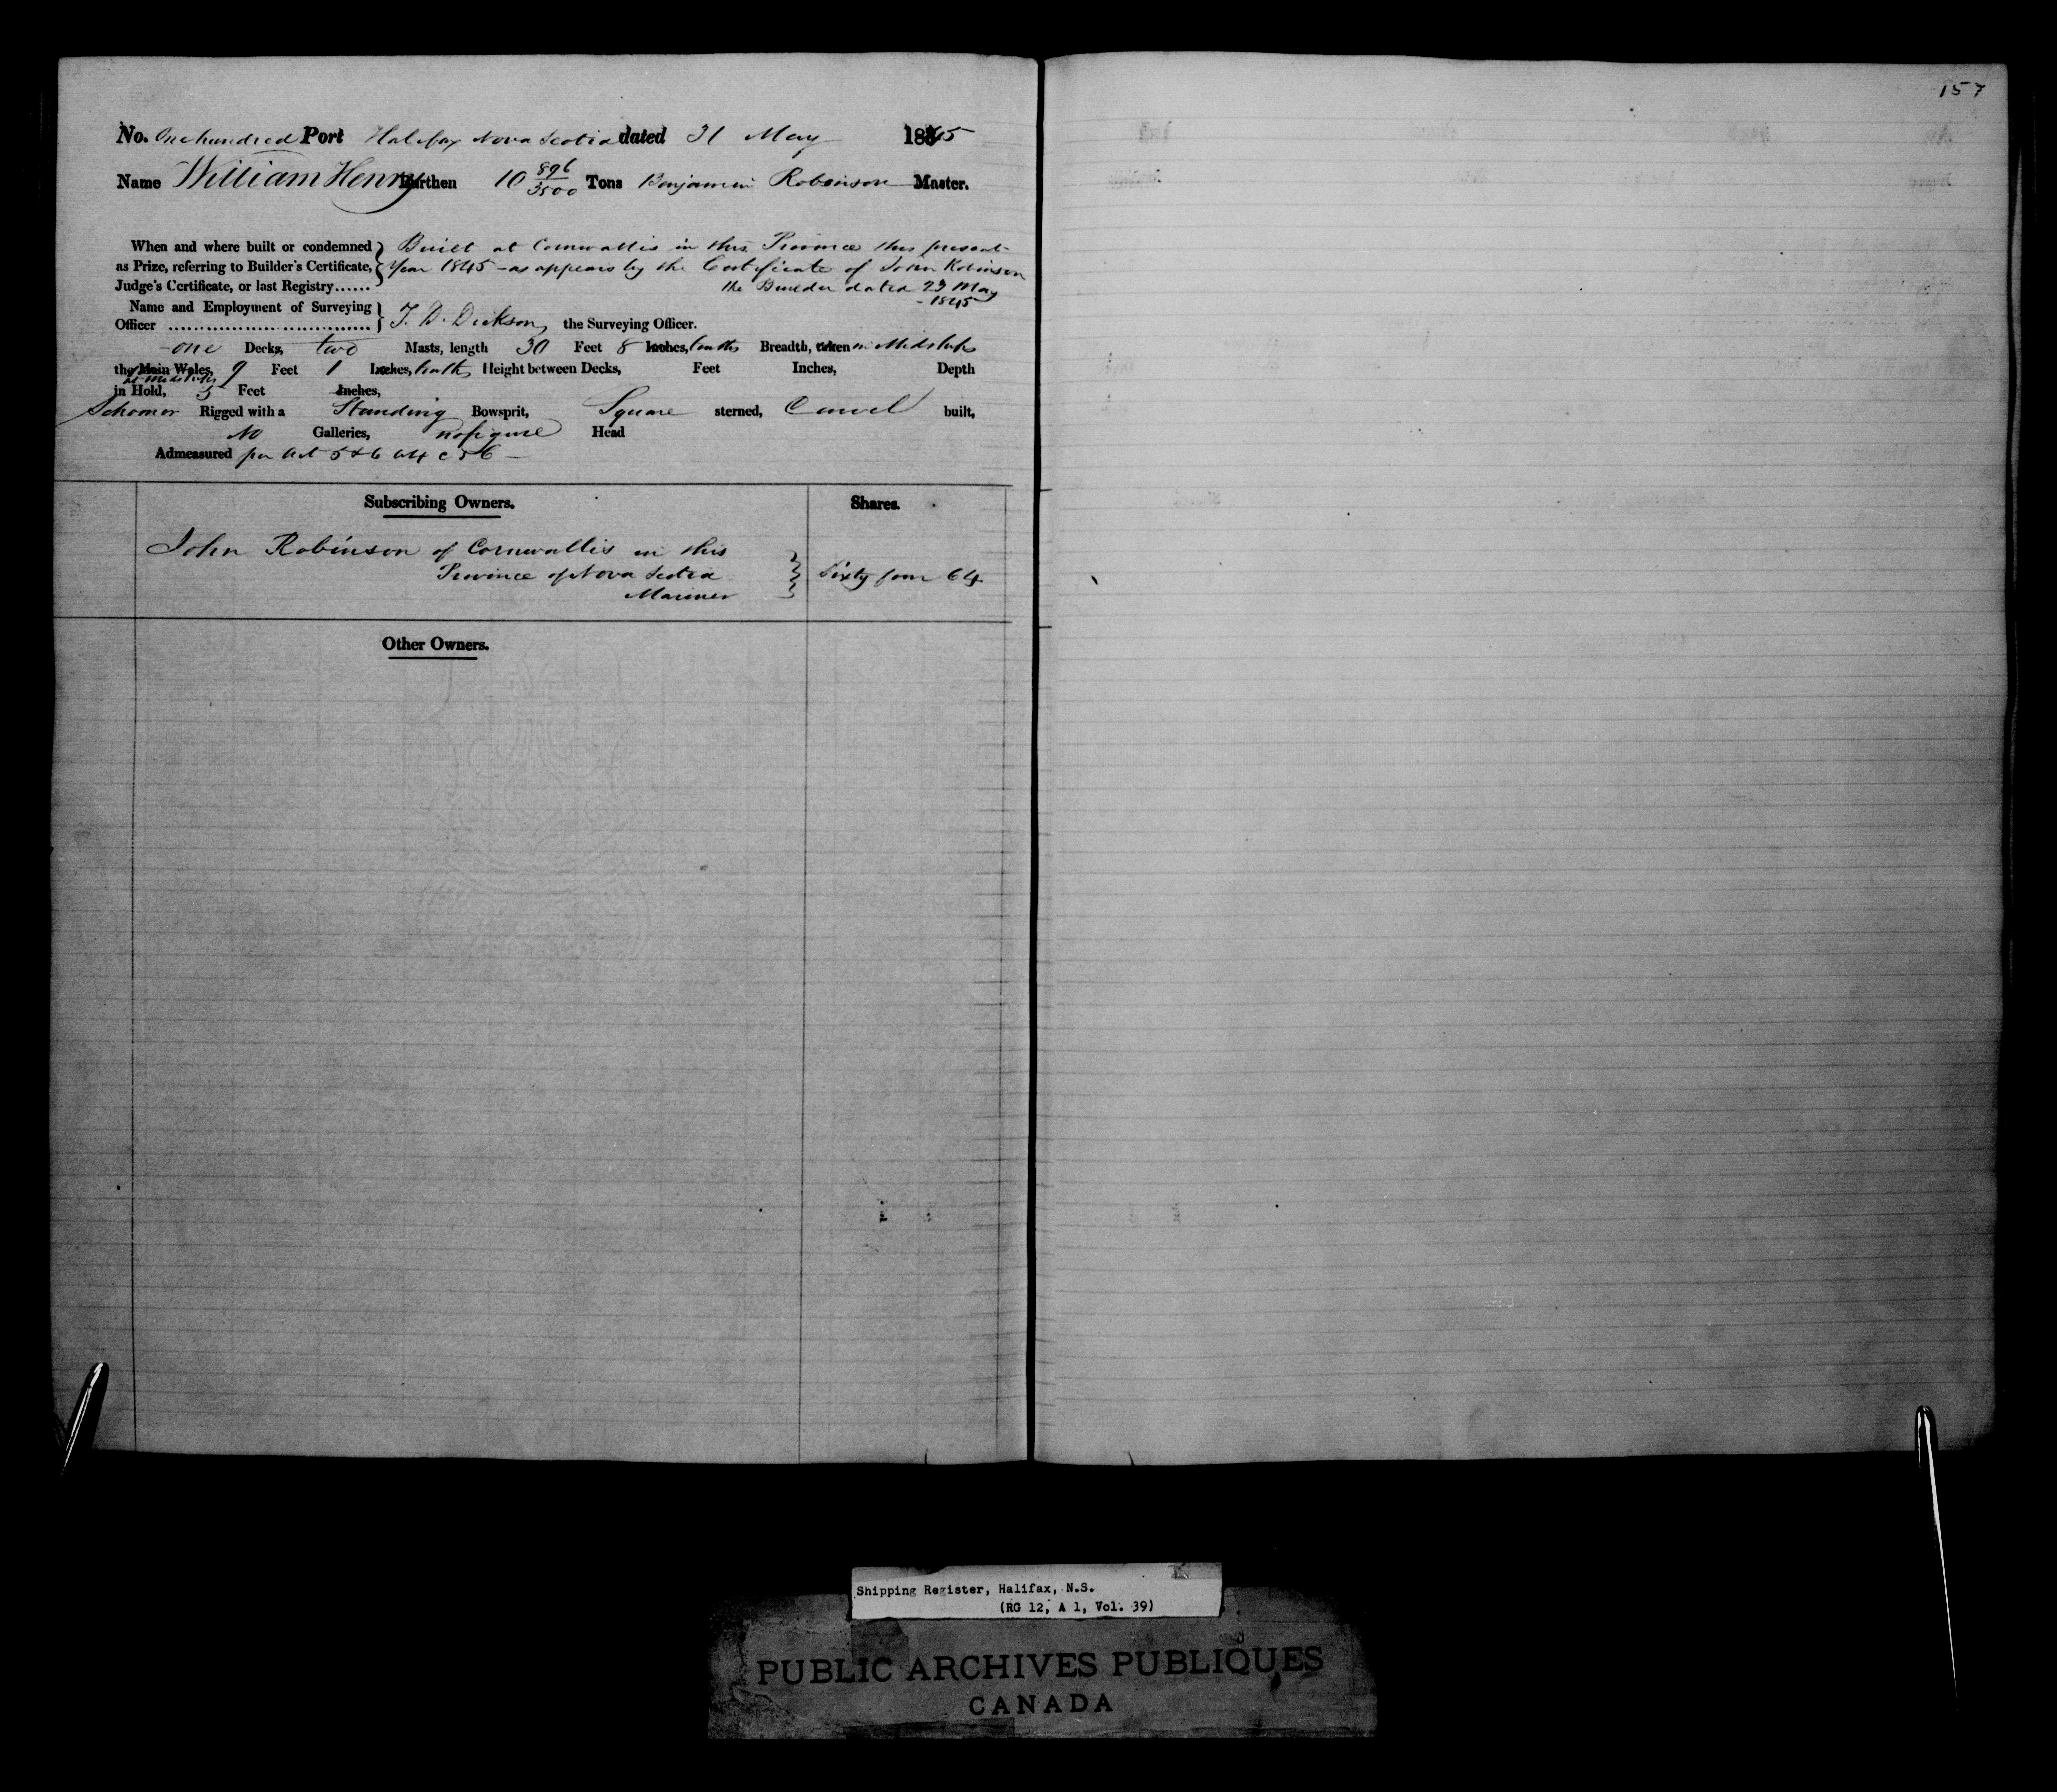 157
No. One hundred Port Halifax Nova Scotia dated 31 May 1845
Name William Henry Burthen 10 896/3500 Tons Benjamin Robinson Master.
When and where built or condemned } Built at Cornwallis in this Province this present
as Prize, referring to Builder's Certificate, { Year 1845 - as appears by the Certificate of John Robinson
Judge's Certificate, or last Registry...... the Builder dated 23 May
- 1845
Name and Employment of Surveying
Officer } T. D. Dickson, the Surveying Officer.
- one Decks, two Masts, length 30 Feet 8 Inches, tenths Breadth, taken in Midships
the Main Wales, 9 Feet 1 Inches, tenths Height between Decks, Feet Inches, Depth
at Midships
in Hold, 5 Feet Inches,
Schooner Rigged with a Standing Bowsprit, Square sterned, Carvel built,
No Galleries, no figure Head
Admeasured per Act 5 & 6 W4 c 56 -
Subscribing Owners. Shares.
John Robinson of Cornwallis in this
Province of Nova Scotia } Sixty four 64
Mariner
Other Owners.
Shipping Register, Halifax, N.S.
(RG 12, A 1, Vol. 39)
PUBLIC ARCHIVES PUBLIQUES
CANADA